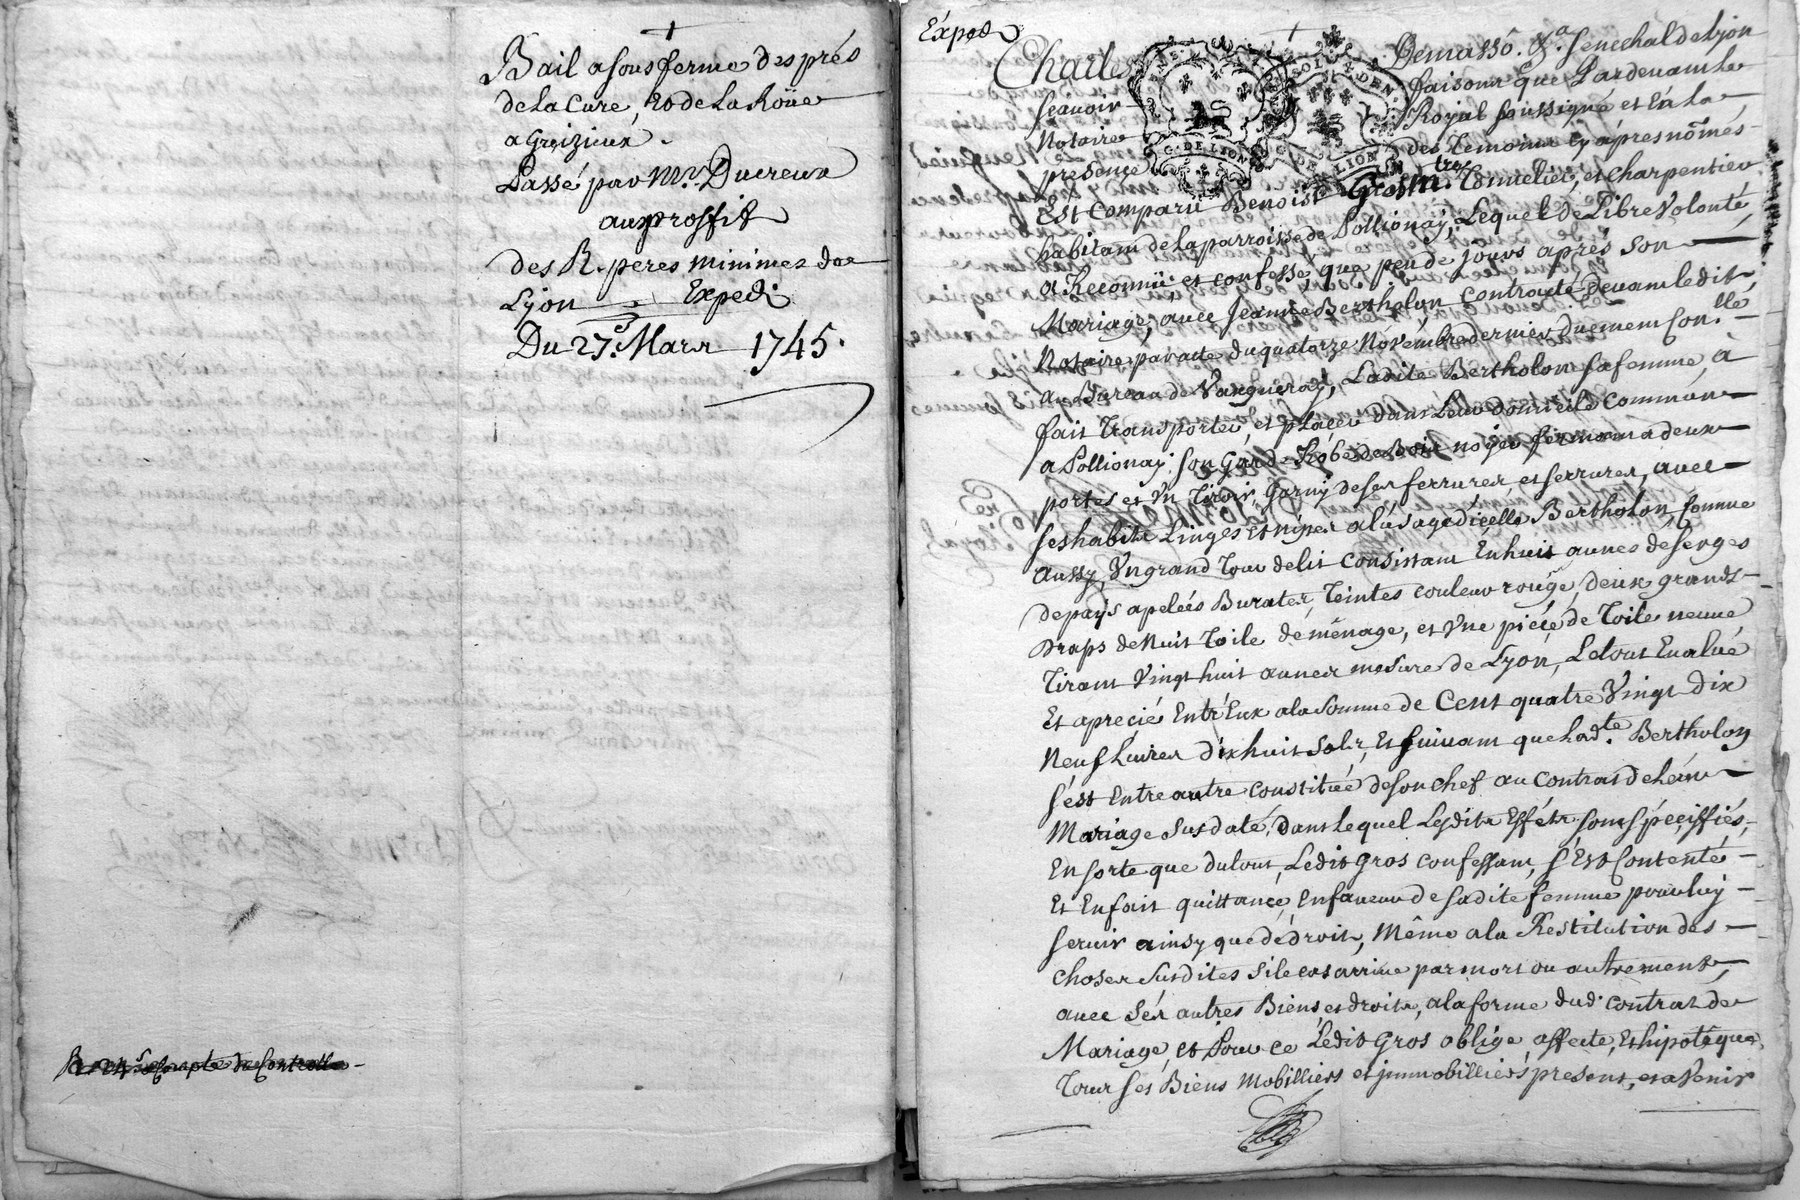 Bail a sous ferme des prés
de la Cure, et de La Roüe
a Greizieux.
Passé par Mr. Ducreux
au proffit
des R. peres minimes de
Lyon Expedi
Du 27.e Mars 1745.
Compte du Controlle
Exped
Charles Demasso. &a. Senechal de Lyon
Scavoir faisons que Pardevant Le
Notaire Royal soussigné et En La
presence des temoins cy apres nommés
Est Comparü Benoist Gros m.tre Tonnelier, et charpentier
habitant de la parroisse de Pollionay, Lequel de Libre Volonté
a Reconnü, et confessé, que peu de jours aprés son
Mariage, avec Jeanne Bertholon contracté devant ledit
Notaire par acte du quatorze Novembre dernier duement Con.llé
au Bureau de Vaugneray, Ladite Bertholon sa femme, à
fait transporter, et placer dans Leur domicile commun
a Pollionay, son Garde Robe de Bois noyer fermant a deux
portes et Un Tiroir, Garny de ses ferrures, et serrures, avec
ses habits Linges et nipes a l'usage d'icelle Bertholon, comme
aussy, Un grand Tour de lit Consistant En huit aunes de serges
de pays apelées Burates, Teintes couleur rouge, deux grands
Draps de Nuit Toile de ménage, et Une piéce de Toile neuve
Tirant Vingt huit aunes mesure de Lyon, Le tout Evalué
Et aprecié Entr'Eux a la Somme de Cent quatre Vingt Dix
Neuf Livres dixhuit Sols, Et suivant que Lad.te Bertholon
s'est Entre autre constituée de son chef au contrat de Leur
Mariage susdaté, Dans lequel Lesdits Efféts sont spéciffiés,
En sorte que du tout, Ledit Gros confessant, s'Est Contenté
Et En fait quittance, En faveur de sadite femme pour luy
servir ainsy que de droit, Même a la Restitution des
choses susdites si le cas arrive par mort ou autrement,
avec Ses autres Biens et droits, a la forme dud. contrat de
Mariage, et Pour ce Ledit Gros oblige affecte, Et hipotéque
Tour ses Biens Mobilliers et jmmobilliers present, et a Venir